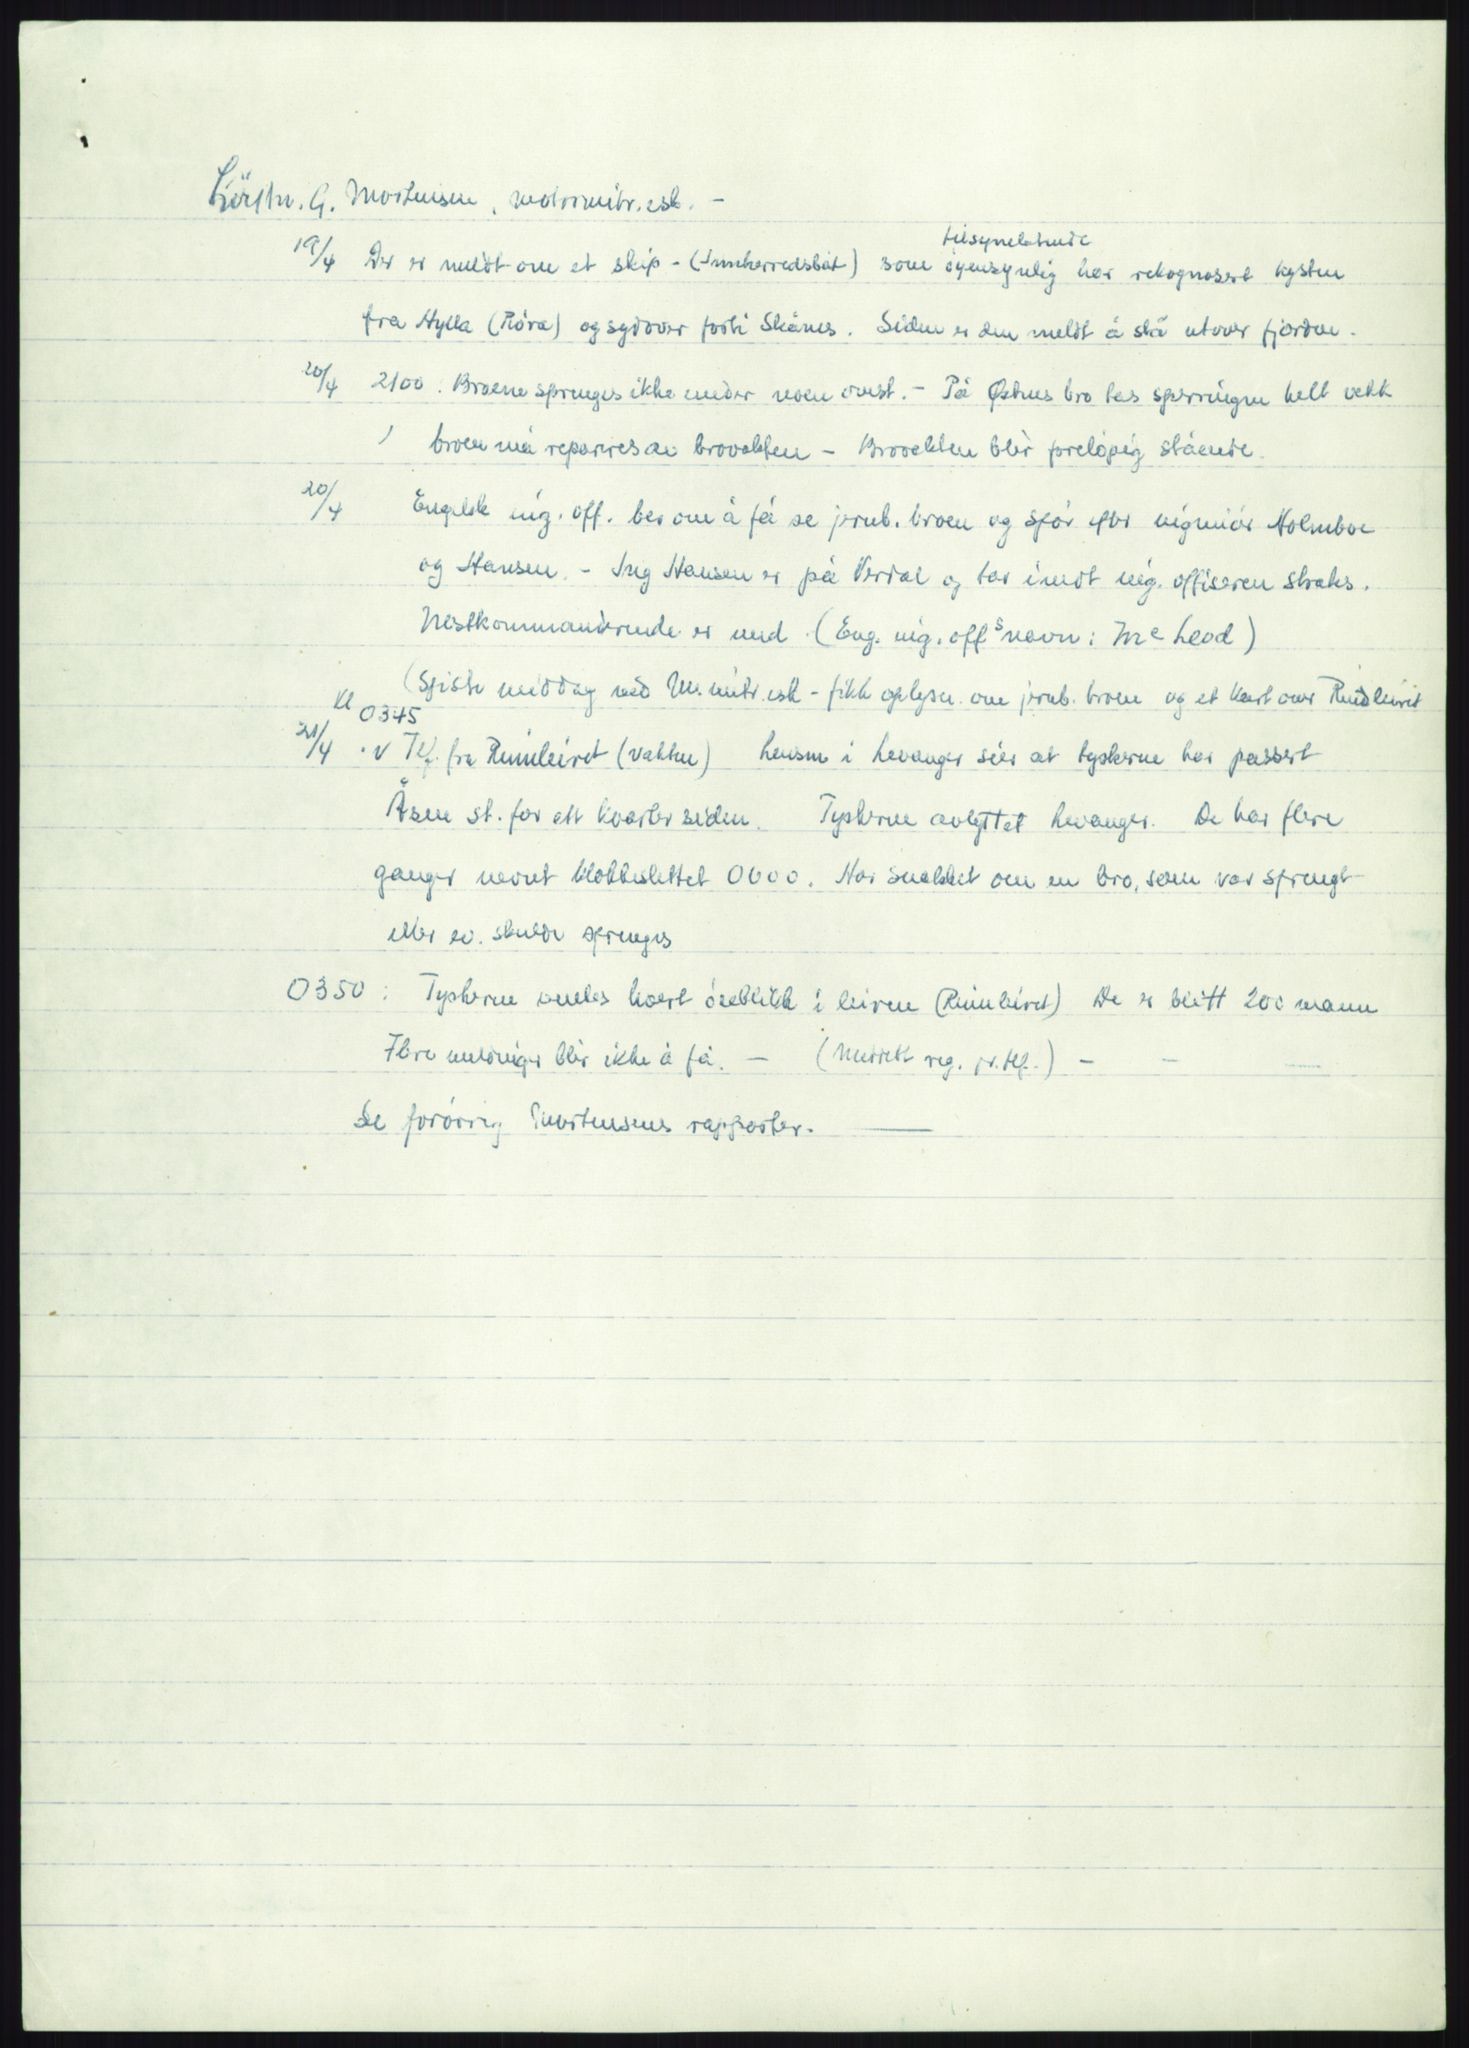 Löitn. G. Mortensen, motormitr.esk. –
tilsynelatende
19/4 Der er meldt om et skip – (Innherredsbåt) som öyensynlig har rekognosert kysten
fra Hylla (Röra) og sydover forbi Skånes. Siden er den meldt å stå utover fjorden.
20/4 2100. Broene sprenges ikke under noen omst. – På Østnes bro tas sperringen helt vekk
broen må repareres av brovakten – Brovakten blir forelöpig stående.
20/4 Engelsk ing. off. ber om å få se jernb. broen og spör efter ingeniör Holmboe
og Hansen. – Ing Hansen er på Verdal og tar imot ing. offiseren straks.
Nestkommanderende er med. (Eng. ing. offs navn: Mc Leod)
(Spiste middag ved M.mitr.esk – fikk oplysn. om jernb. broen og et kart over Rinnleiret
Kl 0345
21/4 Tlf. fra Rinnleiret (vakten) Lensm i Levanger sier at tyskerne har passert
Åsen st. for ett kvarter siden. Tyskerne avlyttet Levanger. De har flere
ganger nevnt klokkeslettet 0600. Har snakket om en bro, som var sprengt
eller ev. skulde sprenges
0350: Tyskerne ventes hvert öieblikk i leiren (Rinnleiret) De er blitt 200 mann
Flere meldinger blir ikke å få. – (Meddelt reg. pr. tlf.) – –
Se forövrig Mortensens rapporter. —